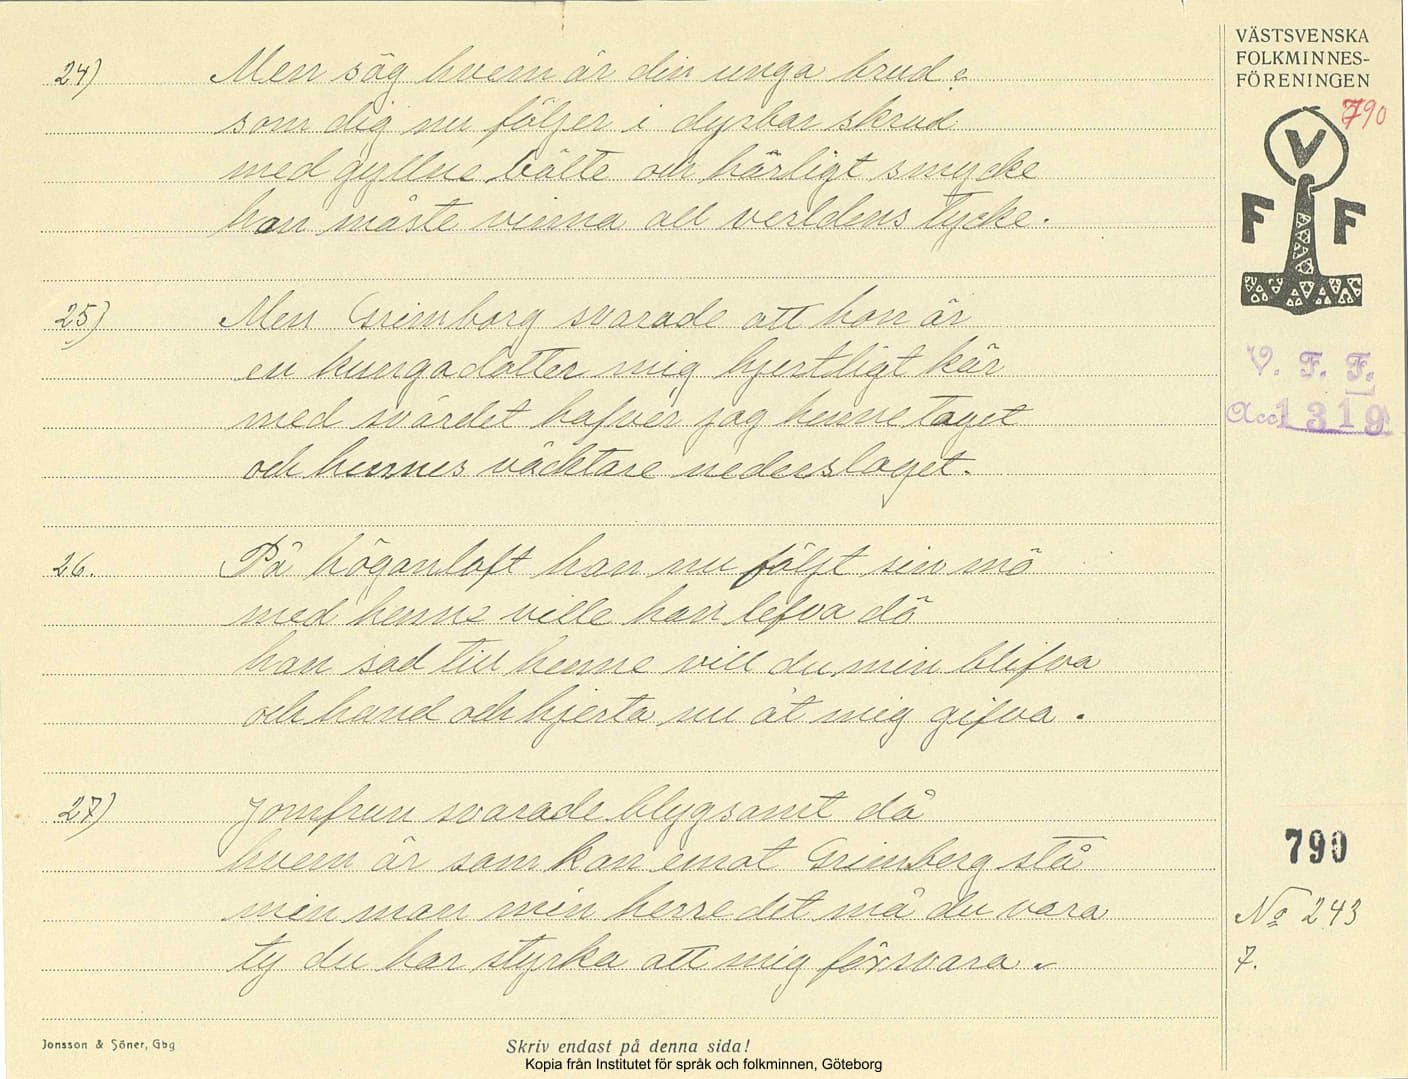 24) Men säg hvem är din unga brud.
som dig nu följer i dyrbar skrud
med gyllne bälte och härligt smycke
hon måste vinna all verldens tycke.
25) Men Grimborg svarade att hon är
en kungadotter mig hjertligt kär
med svärdet hafver jag henne taget
och hennes väcktare nederslaget.
26. På höganloft han nu följt sin mö
med henne ville han lefva dö
han sad till henne vill du min blifva
och hand och hjerta nu åt mig gifva.
27) Jomfrun svarade blygsamt då
hvem är som kan emot Grimberg stå
min man min herre det må du vara
ty du har styrka att mig försvara.
Jonsson & Söner, Gbg
Skriv endast på denna sida!
Kopia från Institutet för språk och folkminnen, Göteborg
VÄSTSVENSKA
FOLKMINNES-
FÖRENINGEN
790
V
F F
V. F. F.
Acc 1319
790
No 243
7.